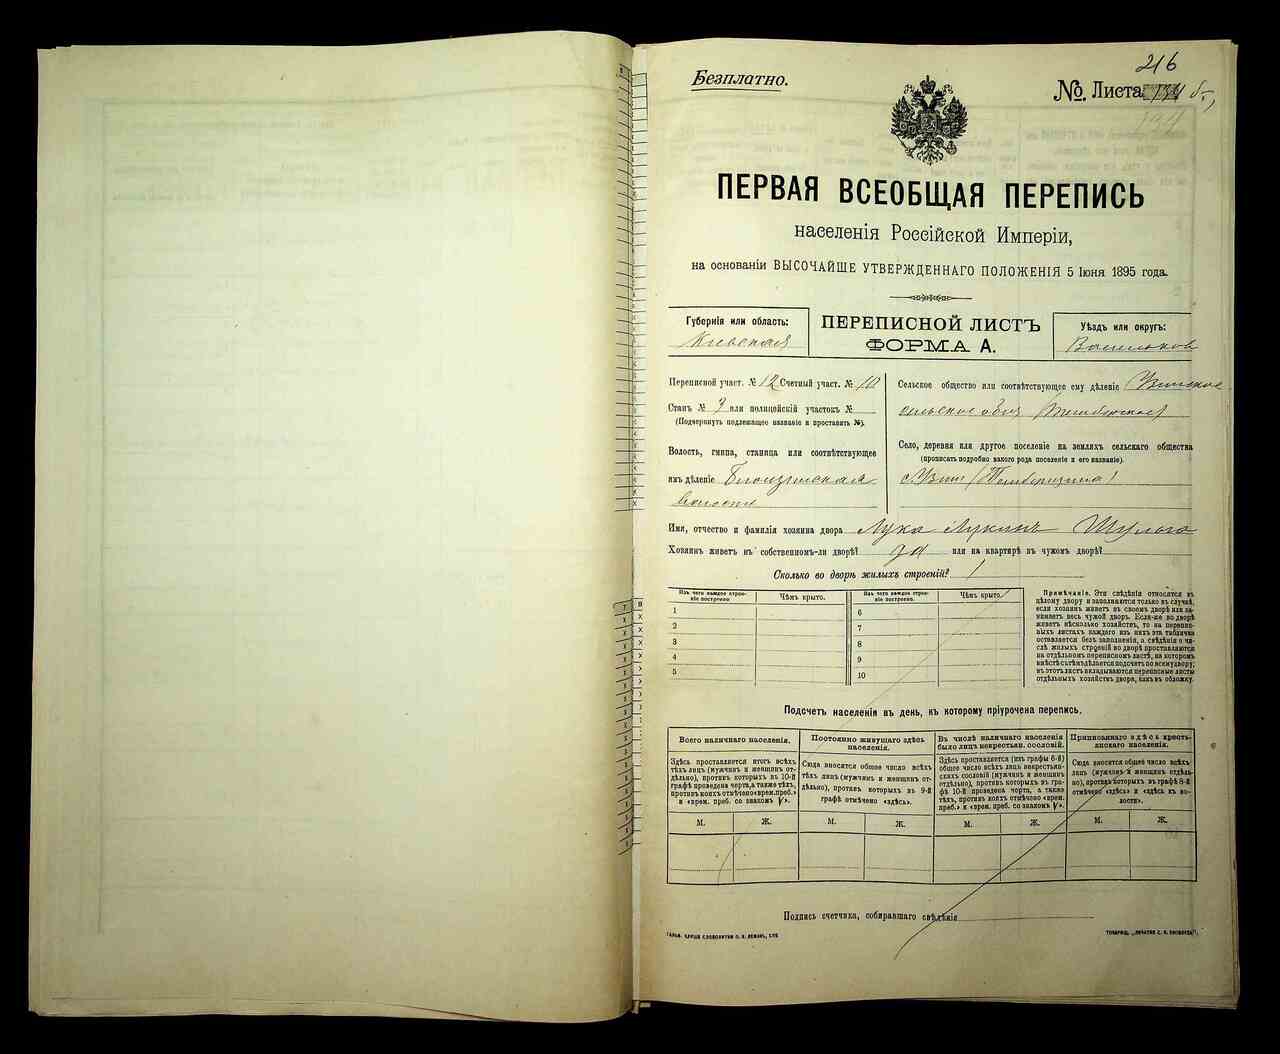 216
Безплатно.
№. Листа
ПЕРВАЯ ВСЕОБЩАЯ ПЕРЕПИСЬ
населенія Россійской Имперіи,
на основаніи ВЫСОЧАЙШЕ УТВЕРЖДЕННАГО ПОЛОЖЕНІЯ 5 Іюня 1895 года.
Губернія или область:
Кіевская
ПЕРЕПИСНОЙ ЛИСТЪ
ФОРМА А.
Уѣздъ или округъ:
Васильков
Переписной участ. № 12 Счетный участ. № 10
Станъ № 3 или полицейскій участокъ №
(Подчеркнуть подлежащее названіе и проставить №).
Волость, гмина, станица или соотвѣтствующее
имъ дѣленіе
волость
Сельское общество или соотвѣтствующее ему дѣленіе Узинское
сельское
Село, деревня или другое поселеніе на земляхъ сельскаго общества
(прописать подробно какого рода поселеніе и его названіе).
с. Узин
Имя, отчество и фамилія хозяина двора Лука Лукинъ Шулога
Хозяинъ живетъ въ собственномъ-ли дворѣ? да или на квартирѣ въ чужомъ дворѣ?
Сколько во дворѣ жилыхъ строеній? 1
Изъ чего каждое строе-
ніе построено.
Чѣмъ крыто.
1
2
3
4
5
Изъ чего каждое строе-
ніе построено.
Чѣмъ крыто.
6
7
8
9
10
Примѣчаніе. Эти свѣдѣнія относятся къ
цѣлому двору и заполняются только въ случаѣ,
если хозяинъ живетъ въ своемъ дворѣ или за-
нимаетъ весь чужой дворъ. Если-же во дворѣ
живетъ нѣсколько хозяйствъ, то на перепис-
ныхъ листахъ каждаго изъ нихъ эта табличка
оставляется безъ заполненія, а свѣдѣнія о чи-
слѣ жилыхъ строеній во дворѣ проставляются
на отдѣльномъ переписномъ листѣ, на которомъ
вмѣстѣ съ тѣмъ дѣлается подсчетъ по всему двору;
въ этотъ листъ вкладываются переписные листы
отдѣльныхъ хозяйствъ двора, какъ въ обложку.
Подсчетъ населенія въ день, къ которому пріурочена перепись.
Всего наличнаго населенія.
Здѣсь проставляется итогъ всѣхъ
тѣхъ лицъ (мужчинъ и женщинъ от-
дѣльно), противъ которыхъ въ 10-й
графѣ проведена черта, а также тѣхъ,
противъ коихъ отмѣчено «врем. преб.»
и «врем. преб. со знакомъ V».
М. Ж.
Постоянно живущаго здѣсь
населенія.
Сюда вносится общее число всѣхъ
тѣхъ лицъ (мужчинъ и женщинъ от-
дѣльно), противъ которыхъ въ 9-й
графѣ отмѣчено «здѣсь».
М. Ж.
Въ числѣ наличнаго населенія
было лицъ некрестьян. сословій.
Здѣсь проставляется (изъ графы 6-й)
общее число всѣхъ лицъ некрестьян-
скихъ сословій (мужчинъ и женщинъ
отдѣльно), противъ которыхъ въ гра-
фѣ 10-й проведена черта, а также
тѣхъ, противъ коихъ отмѣчено «врем.
преб.» и «врем. преб. со знакомъ V».
М. Ж.
Приписаннаго здѣсь кресть-
янскаго населенія.
Сюда вносится общее число всѣхъ
лицъ (мужчинъ и женщинъ отдѣль-
но), противъ которыхъ въ графѣ 8-й
отмѣчено «здѣсь» и «здѣсь къ во-
лости».
М. Ж.
Подпись счетчика, собиравшаго свѣдѣнія